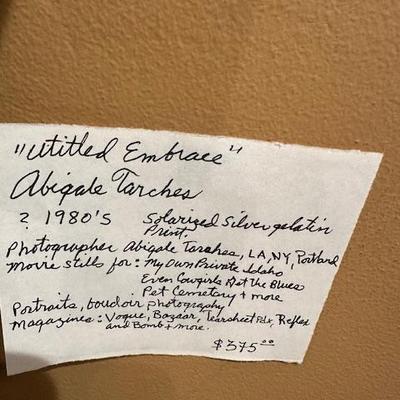 "Utitled Embrace"
Abigale Tarches
? 1980's Solarized Silver gelatin
Print.
Photographer Abigale Tarches, LA, NY, Portland
Movie stills for: My Own Private Idaho
Even Cowgirls Get the Blues
Pet Cemetery + more
Portraits, boudoir photography
Magazines: Vogue, Bazaar, Tearsheet Pdx, Reflex
and Bomb + more.
$375.00